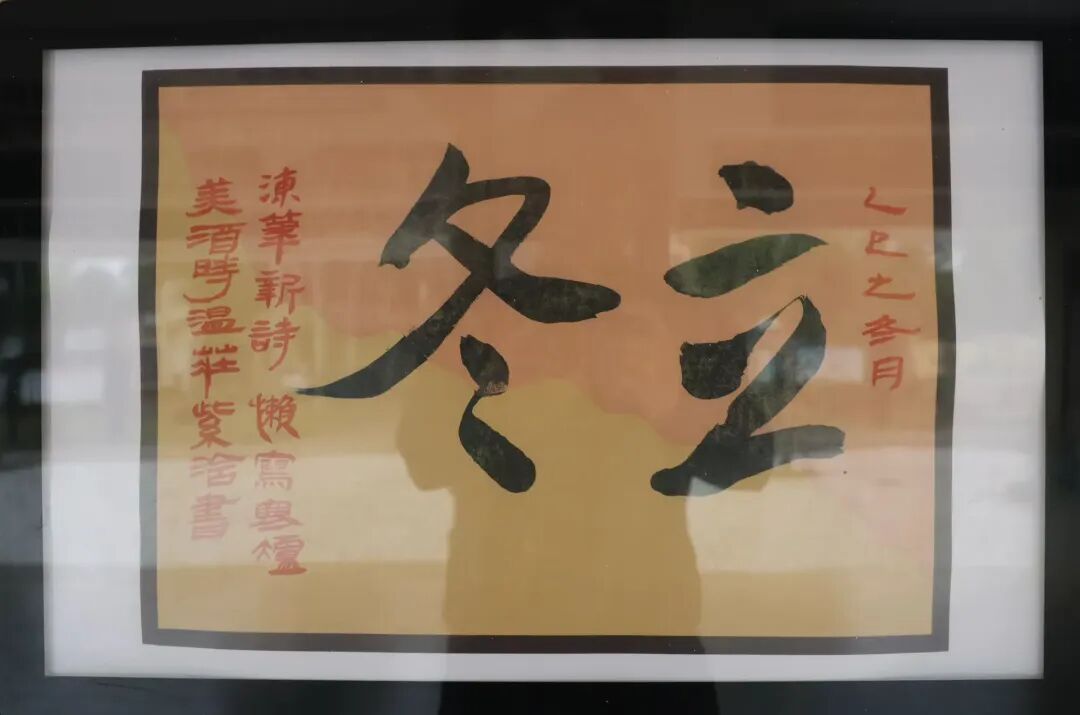 乙巳之冬月
立冬
凍筆新詩 懶寫寒爐
美酒時温莊紫書